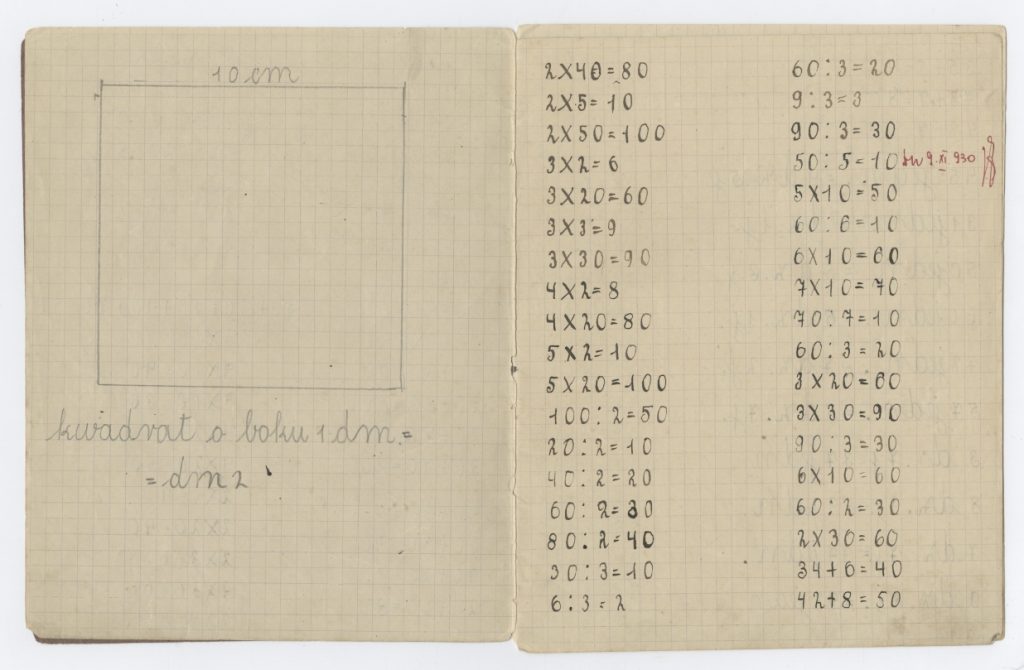 10 cm
kwadrat o boku 1 dm =
= dm 2
2X40=80
2X5=10
2X50=100
3X2=6
3X20=60
3X3=9
3X30=90
4X2=8
4X20=80
5X2=10
5X20=100
100:2=50
20:2=10
40:2=20
60:2=30
80:2=40
30:3=10
6:3=2
60:3=20
9:3=3
90:3=30
50:5=10 9 XI 930
5X10=50
60:6=10
6X10=60
7X10=70
70:7=10
60:3=20
3X20=60
3X30=90
90:3=30
6X10=60
60:2=30
2X30=60
34+6=40
42+8=50